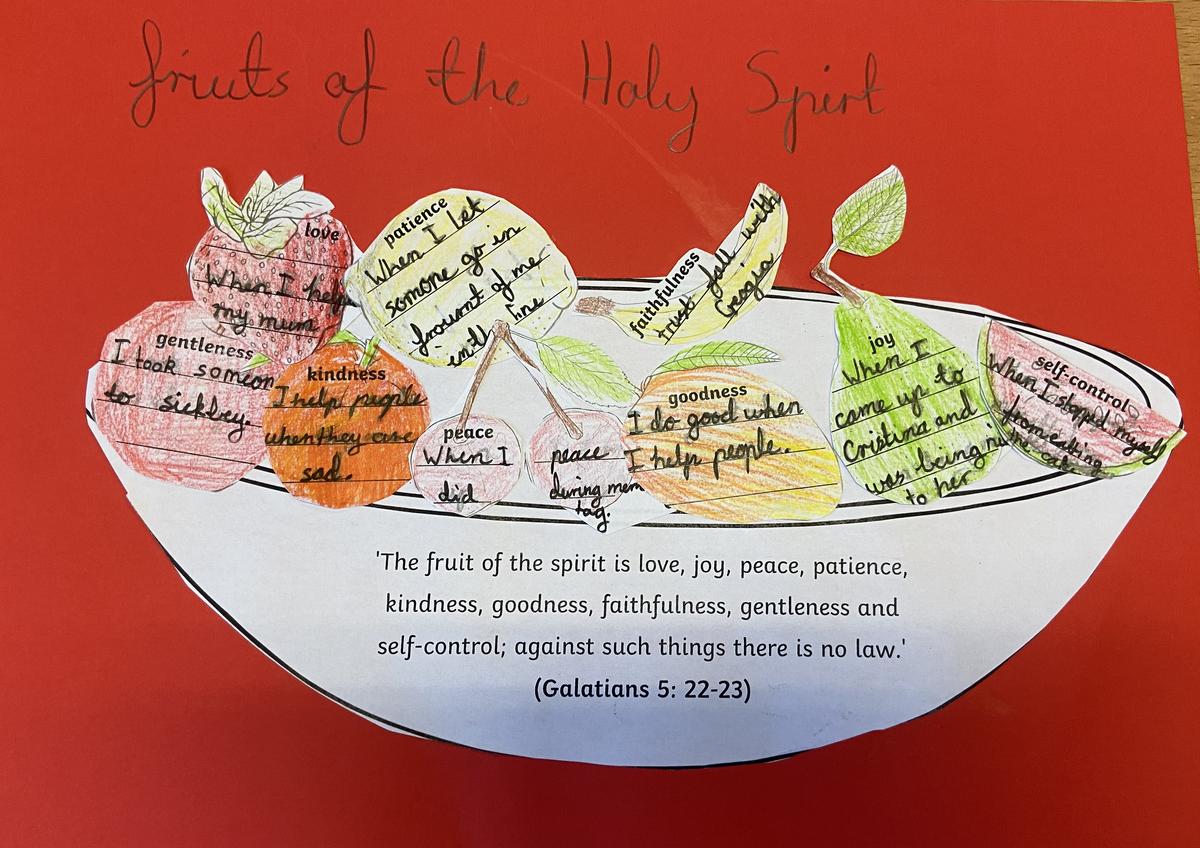 fruits of the Holy Spirt
love
When I help
my mum
patience
When I let
somone go in
frount of me
in the line
faithfulness
trust fall with
Geogia
gentleness
I took someon
to sickbey.
kindness
I help people
when they are
sad.
peace
When I
did
peace
during mem
tag.
goodness
I do good when
I help people.
joy
When I
came up to
Cristina and
was being ni
to her
self-control
When I stopped myself
from eating
the cake
'The fruit of the spirit is love, joy, peace, patience,
kindness, goodness, faithfulness, gentleness and
self-control; against such things there is no law.'
(Galatians 5: 22-23)